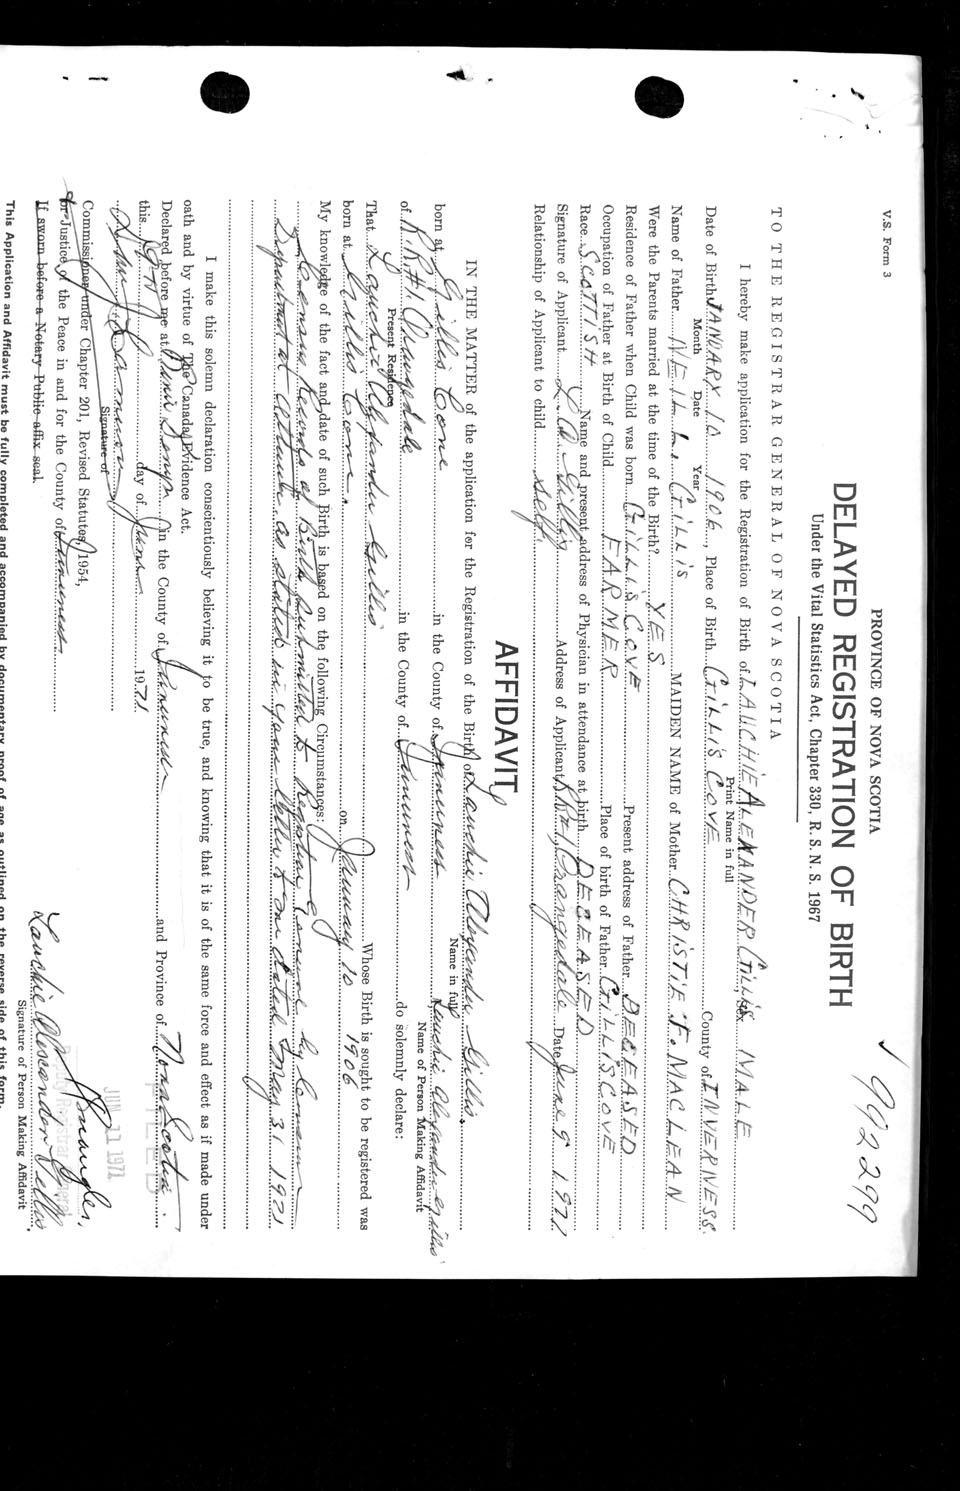 V.S. Form 3
992299
PROVINCE OF NOVA SCOTIA
DELAYED REGISTRATION OF BIRTH
Under the Vital Statistics Act, Chapter 330, R. S. N. S. 1967
TO THE REGISTRAR GENERAL OF NOVA SCOTIA
I hereby make application for the Registration of Birth of LAUCHIE ALEXANDER GILLIS MALE
Print Name in full
Date of Birth JANUARY 10 1906, Place of Birth GILLIS COVE County of INVERNESS
Month Date Year
Name of Father NEIL L. GILLIS MAIDEN NAME of Mother CHRISTIE J. MACLEAN
Were the Parents married at the time of the Birth? YES
Residence of Father when Child was born GILLIS COVE Present address of Father DECEASED
Occupation of Father at Birth of Child FARMER Place of birth of Father GILLIS COVE
Race SCOTTISH Name and present address of Physician in attendance at birth DECEASED
Signature of Applicant L. A. Gillis Address of Applicant RR#1, Orangedale Date June 9 1971
Relationship of Applicant to child Self.
AFFIDAVIT
IN THE MATTER of the application for the Registration of the Birth of Lauchie Alexander Gillis.
Name in full
born at Gillis Cove in the County of Inverness Lauchie Alexander Gillis
Name of Person Making Affidavit
of R.R#1. Orangedale in the County of Inverness do solemnly declare:
Present Residence
That Lauchie Alexander Gillis Whose Birth is sought to be registered was
born at Gillis Cove. on January 10 1906
My knowledge of the fact and date of such Birth is based on the following Circumstances:
Census Records of Birth submitted to Registrar General by Census
Department at Ottawa, as stated in your letter to me dated May 31 1971
I make this solemn declaration conscientiously believing it to be true, and knowing that it is of the same force and effect as if made under
oath and by virtue of The Canada Evidence Act.
Declared before me at in the County of Inverness and Province of Nova Scotia.
this 9th day of June 1971
JUN 11 1971
Signature of
Commissioner under Chapter 201, Revised Statutes, 1954,
or Justice of the Peace in and for the County of Inverness
Deputy Registrar General
If sworn before a Notary Public affix seal.
Lauchie Alexander Gillis
Signature of Person Making Affidavit
This Application and Affidavit must be fully completed and accompanied by documentary proof of age as outlined on the reverse side of this form.